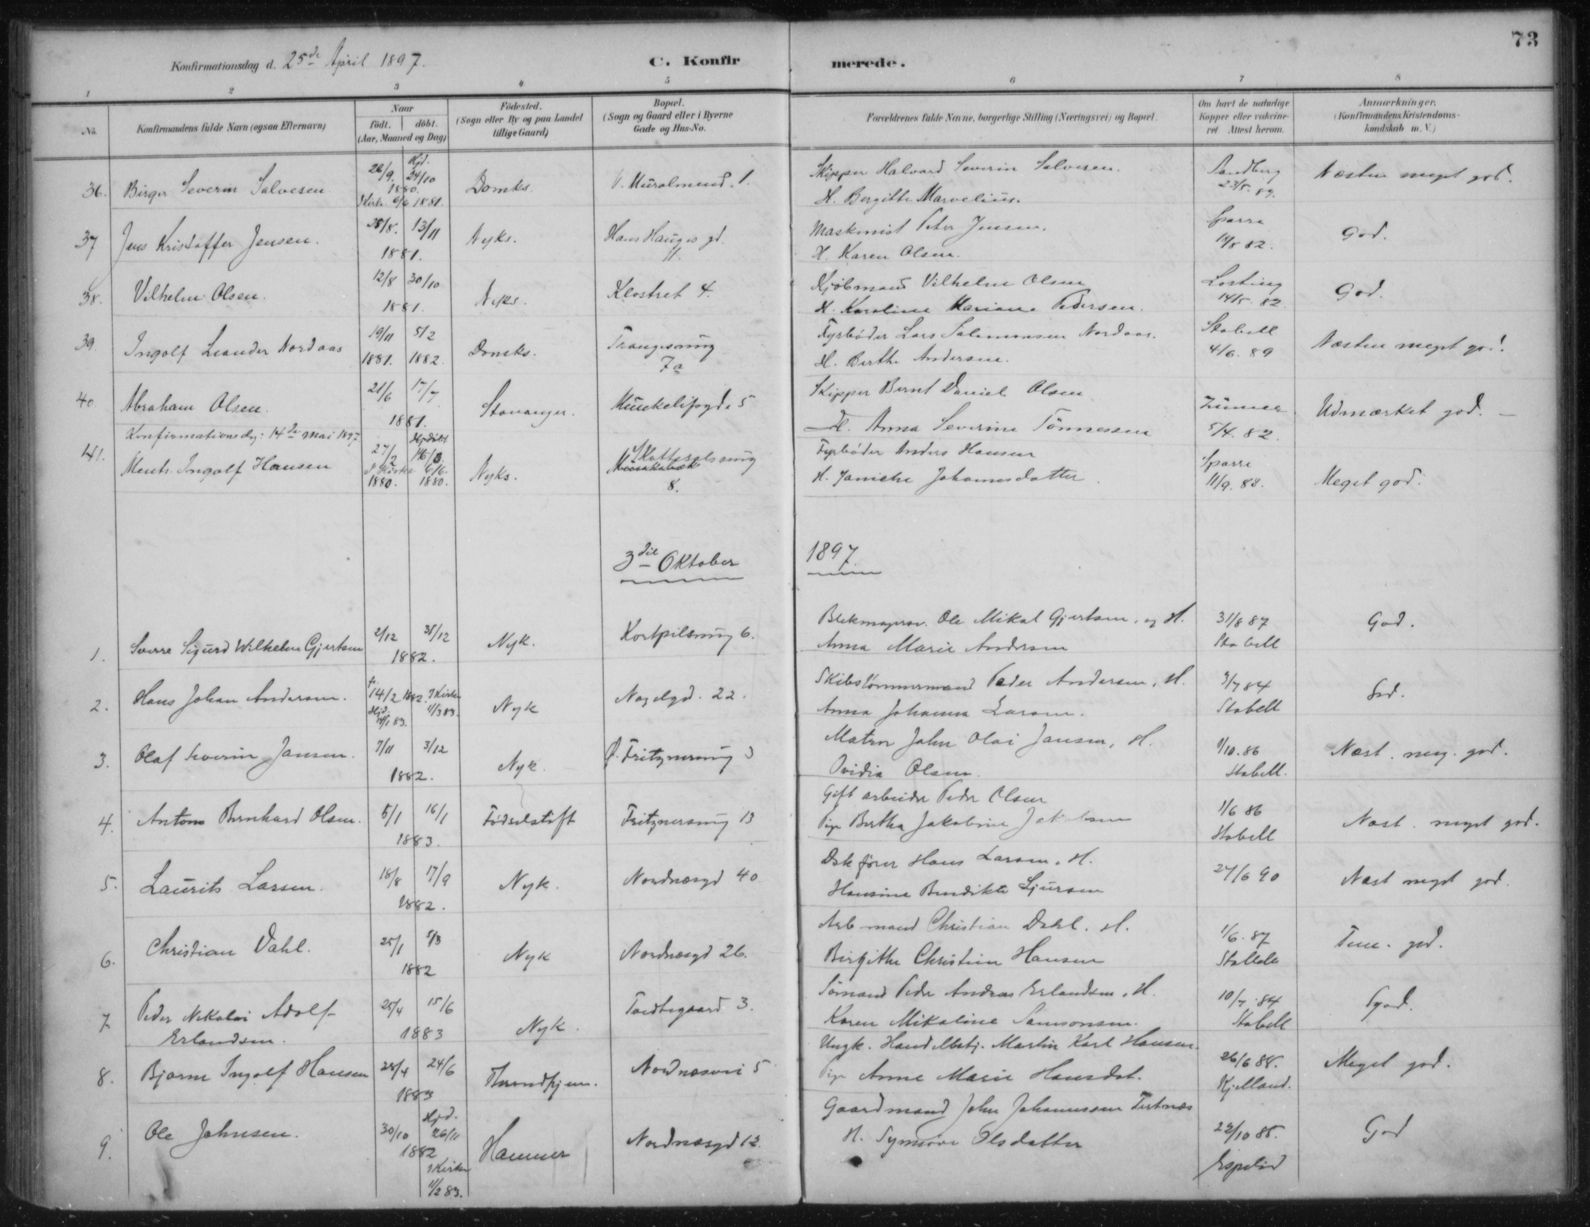 73
Konfirmationsdag d. 25de April 1897.
C. Konfirmerede.
1 2 3 4 5 6 7 8
No. Konfirmandens fulde Navn (ogsaa Efternavn) Naar født. døbt. (Aar, Maaned og Dag) Fødested. (Sogn eller By og paa Landet tillige Gaard) Bopæl. (Sogn og Gaard eller i Byerne Gade og Hus-No. Forældrenes fulde Navne, borgerlige Stilling (Næringsvei) og Bopæl. Om havt de naturlige Kopper eller vakcineret. Attest herom. Anmærkninger. (Konfirmandens Kristendomskundskab m. V.)
36. Birger Severin Salvesen 26/9. Hjd. 24/10 1880. Kirk. 6/2 1881. Domks. V. Muralmend. 1. Skipper Halvard Severin Salvesen. Sandberg Næsten meget god.
H. Bergitte Marcelius. 23/5. 82.
37 Jens Kristoffer Jensen. 28/8. 13/11 Nyks. Hans Hauges gd. Maskinist Peter Jensen. Sparre God.
1881. 11. H. Karen Olsen. 14/8 82.
38. Vilhelm Olsen. 12/8 30/10 Nyks. Klostret 4. Kjøbmand Vilhelm Olsen God.
1881. H. Karoline Mariane Pedersen. 14/5 82
39. Ingolf Leander Nordaas 19/11 5/2 Domks. Trangesmug Fyrbøder Lars Salimonsen Nordaas. Stabell Næsten meget god.
1881. 1882. 7a H. Berthe Andersen. 4/6. 89
40 Abraham Olsen. 21/6 17/7 Stavanger. Munkelifsgd. 5 Skipper Bernt Daniel Olsen Udmærket god. —
1881. H. Anna Severine Tønnessen 5/4. 82.
Konfirmationsdag: 14de mai 1897
41. Ingolf Hansen 27/2 Hjdøbt 16/3. Nyks. Fyrbøder Anders Hansen Sparre Meget god.
1880. 6/6. 1880. 8. H. Janiche Johannesdatter 11/9. 82.
3die Oktober 1897.
1. Sverre Sigurd Wilhelm Gjertsen 2/12 31/12 Nyk. Kortpilsmug 6. Ole Mikal Gjertsen, og H. 31/8 87 God.
1882. Anna Marie Andersen Stabell
2. Hans Johan Andersen. 14/2 1882. I Kirken Nyk Nagelgd. 22. Skibstømmermand Peder Andersen, H. 3/7 84 God.
Hjd. 11/3 83. Anna Johanna Larsen. Stabell
3. Olaf Severin Jansen. 7/11 3/12 Nyk. Ø. Fritznersmug 3 Matros John Olai Jansen, H. 1/10. 86 Næst. meg. god.
1882. Ovidia Olsen. Stabell.
4. Anton Bernhard Olsen. 5/1 16/1 Fødselsstift Fritznersmug 13 Gift arbeider Peder Olsen 1/6 86 Næst. meget god.
1883. Pige Bertha Jakobine Stabell
5. Laurits Larsen. 18/8 17/9 Nyk. Nordnæsgd 40 Hans Larsen, H. 27/6 90 Næst meget god.
1882. Hansine Bendikte
6. Christian Dahl. 25/1 5/3 Nyk Nordnæsgd 26. Arb mand Christian Dahl. H. 1/6. 87 god.
1882 Birgithe Christine Hansen Stabell
7. Peder Nikolai Adolf 25/4 15/6 Toldtegaard 3. Sømand Peder Andreas Erlandsen, H. 10/7. 84 God.
Erlandsen. 1883 Nyk. Karen Mikaline Samsonsen. Stabell
8. Bjarne Ingolf Hansen 28/4 24/6 Throndhjem. Nordnæsvei 5 Ungk. Handelbetj. Martin Karl Hansen. 26/6 88. Meget god.
1883 Pige Anne Marie Hansdat. Kjelland.
9. Ole Johnsen. 30/10 Hjd. 26/11 Hammer Nordnæsgd 12. Gaardmand John Johannessen God
1882 H. Synnøve Olsdatter 22/10 85.
I Kirken 11/2 83. Espelid